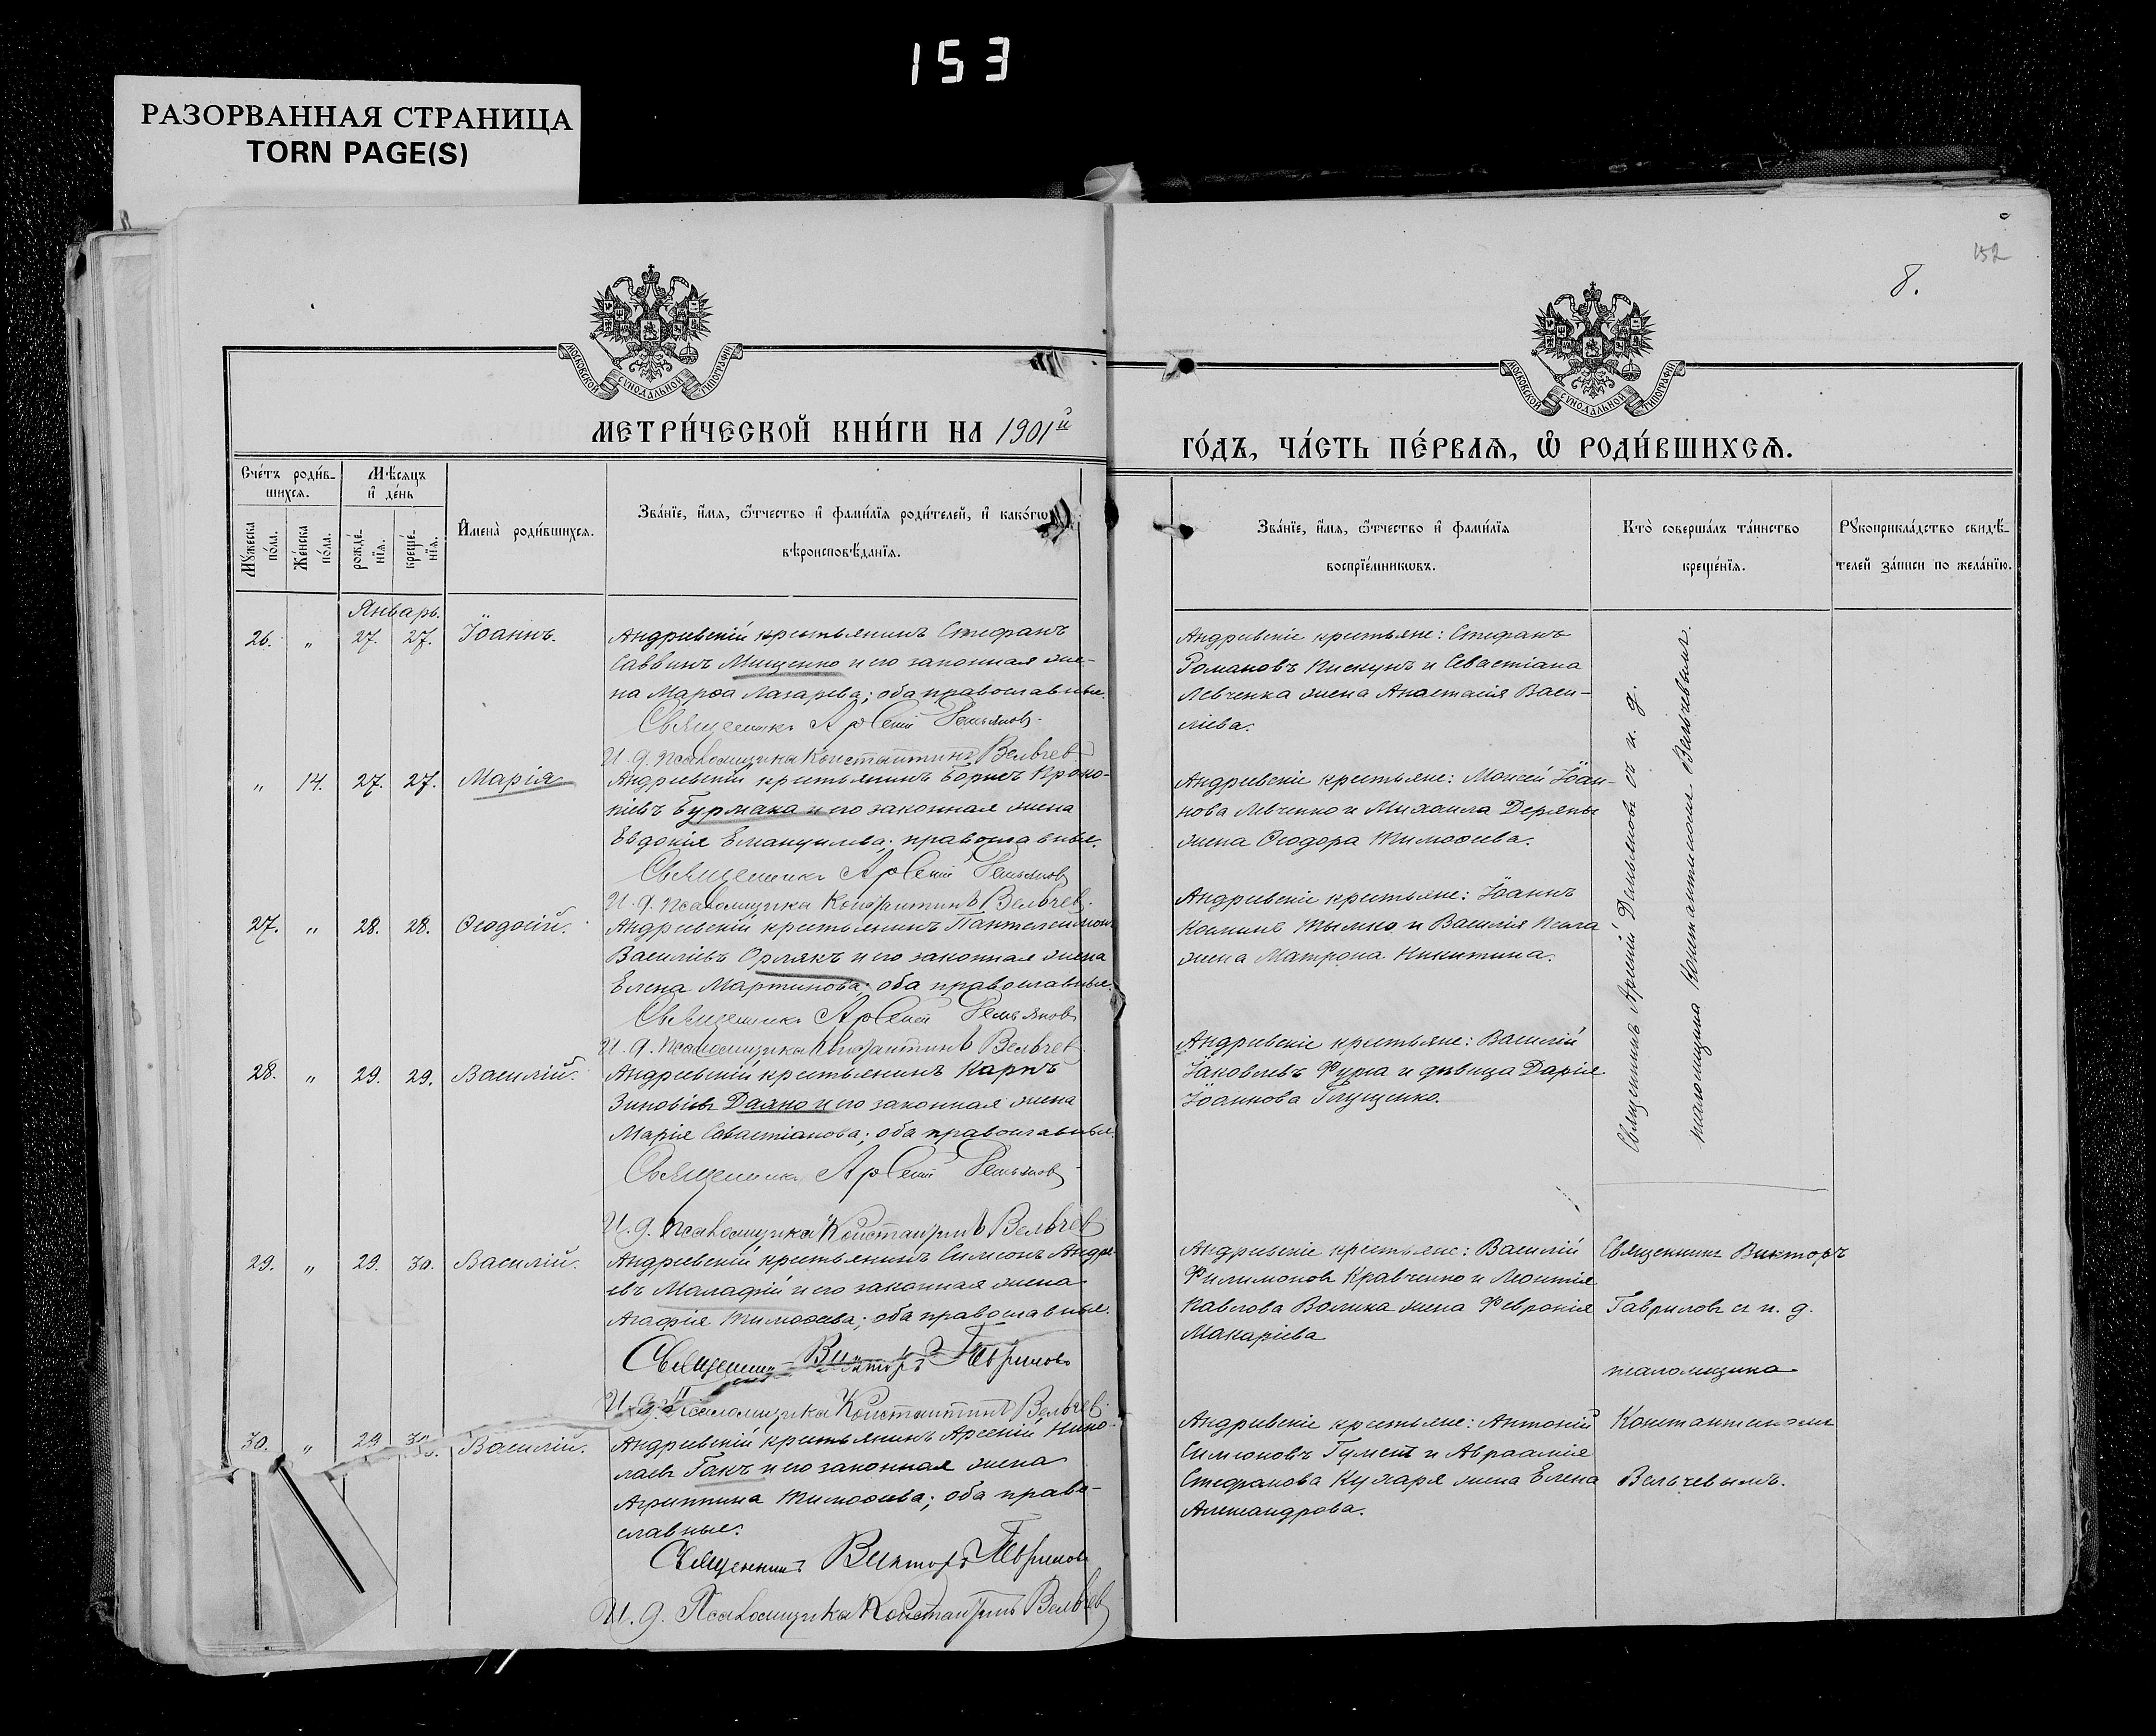 153
РАЗОРВАННАЯ СТРАНИЦА
TORN PAGE(S)
152
8.
МОСКОВСКОЙ СѴНОДАЛЬНОЙ ТИПОГРАФІИ
МОСКОВСКОЙ СѴНОДАЛЬНОЙ ТИПОГРАФІИ
МЕТРИ́ЧЕСКОЙ КНИ́ГИ НА 1901й
ГО́ДЪ, ЧА́СТЬ ПЕ́РВАѦ, Ѡ҆ РОДИ́ВШИХСѦ.
Сче́тъ роди́в-
шихсѧ.
Мѣ́сѧцъ
и҆ де́нь
Мꙋ́жеска по́ла.
Же́нска по́ла.
рожде́нїѧ.
креще́нїѧ.
И҆мена̀ роди́вшихсѧ.
Зва́нїе, и҆́мѧ, ѻ҆́тчество и҆ фами́лїѧ роди́телей, и҆ како́гѡ
вѣроисповѣ́данїѧ.
Зва́нїе, и҆́мѧ, ѻ҆́тчество и҆ фами́лїѧ
воспрїе́мникѡвъ.
Кто̀ соверша́лъ та́инство
креще́нїѧ.
Рꙋкоприкла́дство свидѣ́-
телей за́писи по жела́нїю.
Январь.
26. " 27. 27. Іоаннъ.
Андреевскій крестьянинъ Стефанъ
Саввинъ Мищенко и его законная же-
на Марѳа Лазарева; оба православные.
Священникъ Арсеній Демьянов
И. д. псаломщика Константинъ Вельчев
Андреевскіе крестьяне: Стефанъ
Романовъ Пискунъ и Севастіана
Левченка жена Анастасія Васи-
ліева.
" 14. 27. 27. Марія
Андреевскій крестьянинъ Борисъ Проко-
піевъ Бурмака и его законная жена
Евдокія Емануилова; православные.
Священникъ Арсеній Демьянов
И. д. псаломщика Константинъ Вельчев.
Андреевскіе крестьяне: Моисей Іоан-
нова Левченко и Михаила Деряпы
жена Ѳеодора Тимоѳеева.
27. " 28. 28. Ѳеодосій.
Андреевскій крестьянинъ Пантелеимонъ
Василіевъ Орлякъ и его законная жена
Елена Мартинова; оба православные.
Священникъ Арсеній Демьянов
И. д. псаломщика Константинъ Вельчев
Андреевскіе крестьяне: Іоаннъ
Косминъ Тымко и Василія
жена Матрона Никитина.
28. " 29. 29. Василій.
Андреевскій крестьянинъ Карпъ
Зиновіевъ Даяно и его законная жена
Марія Севастіанова; оба православные.
Священникъ Арсеній Демьянов
И. д. псаломщика Константинъ Вельчев
Андреевскіе крестьяне: Василій
Іаковлевъ Фурса и дѣвица Дарія
Іоаннова Глущенко.
Священникъ Арсеній Демьяновъ съ и. д.
псаломщика Константиномъ Вельчевымъ.
29. " 29. 30. Василій.
Андреевскій крестьянинъ Симеонъ Андре-
евъ Маладій и его законная жена
Агафія Тимоѳеева; оба православные.
Священникъ Викторъ Гавриловъ
И. д. Псаломщика Константинъ Вельчев.
Андреевскіе крестьяне: Василій
Филимоновъ Кравченко и Леонтія
Павлова Волика жена Февронія
Макаріева
Священникъ Викторъ
Гавриловъ съ и. д.
псаломщика
Константиномъ
Вельчевымъ.
30. " 29 30. Василій.
Андреевскій крестьянинъ Арсеній Нико-
лаевъ Гакъ и его законная жена
Агриппина Тимоѳеева; оба право-
славные.
Священникъ Викторъ Гавриловъ
И. д. Псаломщика Константинъ Вельчев
Андреевскіе крестьяне: Антоній
Симеоновъ и Авраамія
Стефанова Кухаря жена Елена
Александрова.